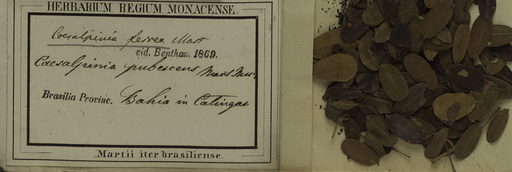 HERBARIUM REGIUM MONACENSE.
Caesalpinia ferrea Mart
vid. Bentham. 1869.
Caesalpinia pubescens Mart Mss.
Brasilia Provinc. Bahia in Catingas.
Martii iter brasiliense.